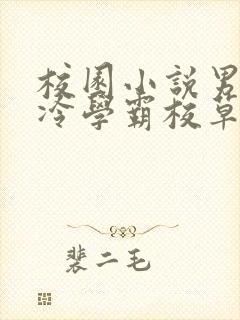 校園小説男
冷學霸校草
裴二毛